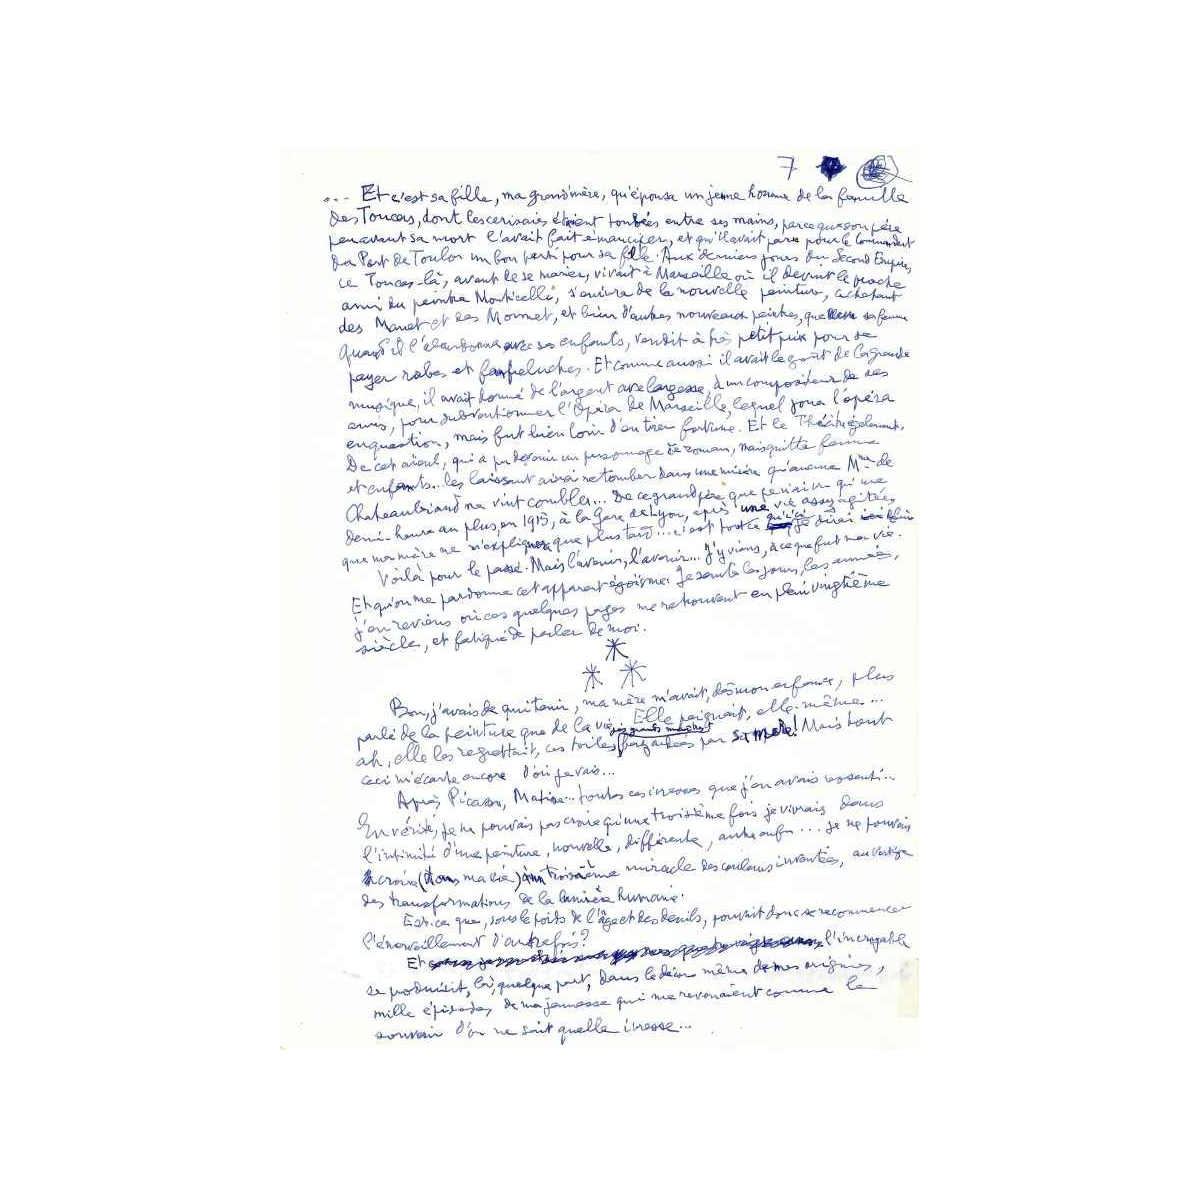 7
... Et c'est sa fille, ma grand'mère, qu'épousa un jeune homme de la famille
des Toucas, dont les cerisaies étaient tombées entre ses mains, parce que son père
peu avant sa mort l'avait fait émanciper, et qu'il avait paru pour le Commandant
du Port de Toulon un bon parti pour sa fille. Aux derniers jours du Second Empire,
ce Toucas-là, avant de se marier, vivait à Marseille où il devint le proche
ami du peintre Monticelli, s'enivra de la nouvelle peinture, achetant
des Manet et des Monnet, et bien d'autres nouveaux peintres, que sa femme
quand il l'abandonna avec ses enfants, vendit à très petit prix pour se
payer robes et fanfreluches. Et comme aussi il avait le goût de la grande
musique, il avait donné de l'argent avec largesse, à un compositeur de ses
amis, pour subventionner l'Opéra de Marseille, lequel joua l'opéra
en question, mais fut bien loin d'en tirer fortune. Et le Théâtre également.
De cet aïeul, qui a pu devenir un personnage de roman, mais quitta femme
et enfants.. les laissant ainsi retomber dans une misère qu'aucune Mme de
Chateaubriand ne vint combler... De ce grand père que je n'ai vu qu'une
demi-heure au plus, en 1915, à la Gare de Lyon, après une vie assez agitée,
que ma mère ne m'expliqua que plus tard... c'est tout ce que je dirai
Voilà pour le passé. Mais l'avenir, l'avenir... J'y viens, à ce que fut ma vie.
Et qu'on me pardonne cet apparent égoïsme. Je saute les jours, les années,
j'en reviens où ces quelques pages me retrouvent en plein vingtième
siècle, et fatigué de parler de moi.
Bon, j'avais de qui tenir, ma mère m'avait, dès mon enfance, plus
parlé de la peinture que de la vie. Elle peignait, elle-même...
ah, elle les regrettait, ces toiles bazardées par sa mère! Mais tout
ceci m'écarte encore d'où je vais...
Après Picasso, Matisse... toutes ces ivresses que j'en avais ressenti...
En vérité, je ne pouvais pas croire qu'une troisième fois je vivrais dans
l'intimité d'une peinture, nouvelle, différente, autre enfin... je ne pouvais
croire (dans ma vie) à un troisième miracle des couleurs inventées, au vertige
des transformations de la lumière humaine.
Est-ce que, sous le poids de l'âge et des deuils, pouvait donc se recommencer
l'émerveillement d'autrefois?
Et l'incroyable
se produisit, là, quelque part, dans le décor même de mes origines,
mille épisodes de ma jeunesse qui me revenaient comme le
souvenir d'on ne sait quelle ivresse...